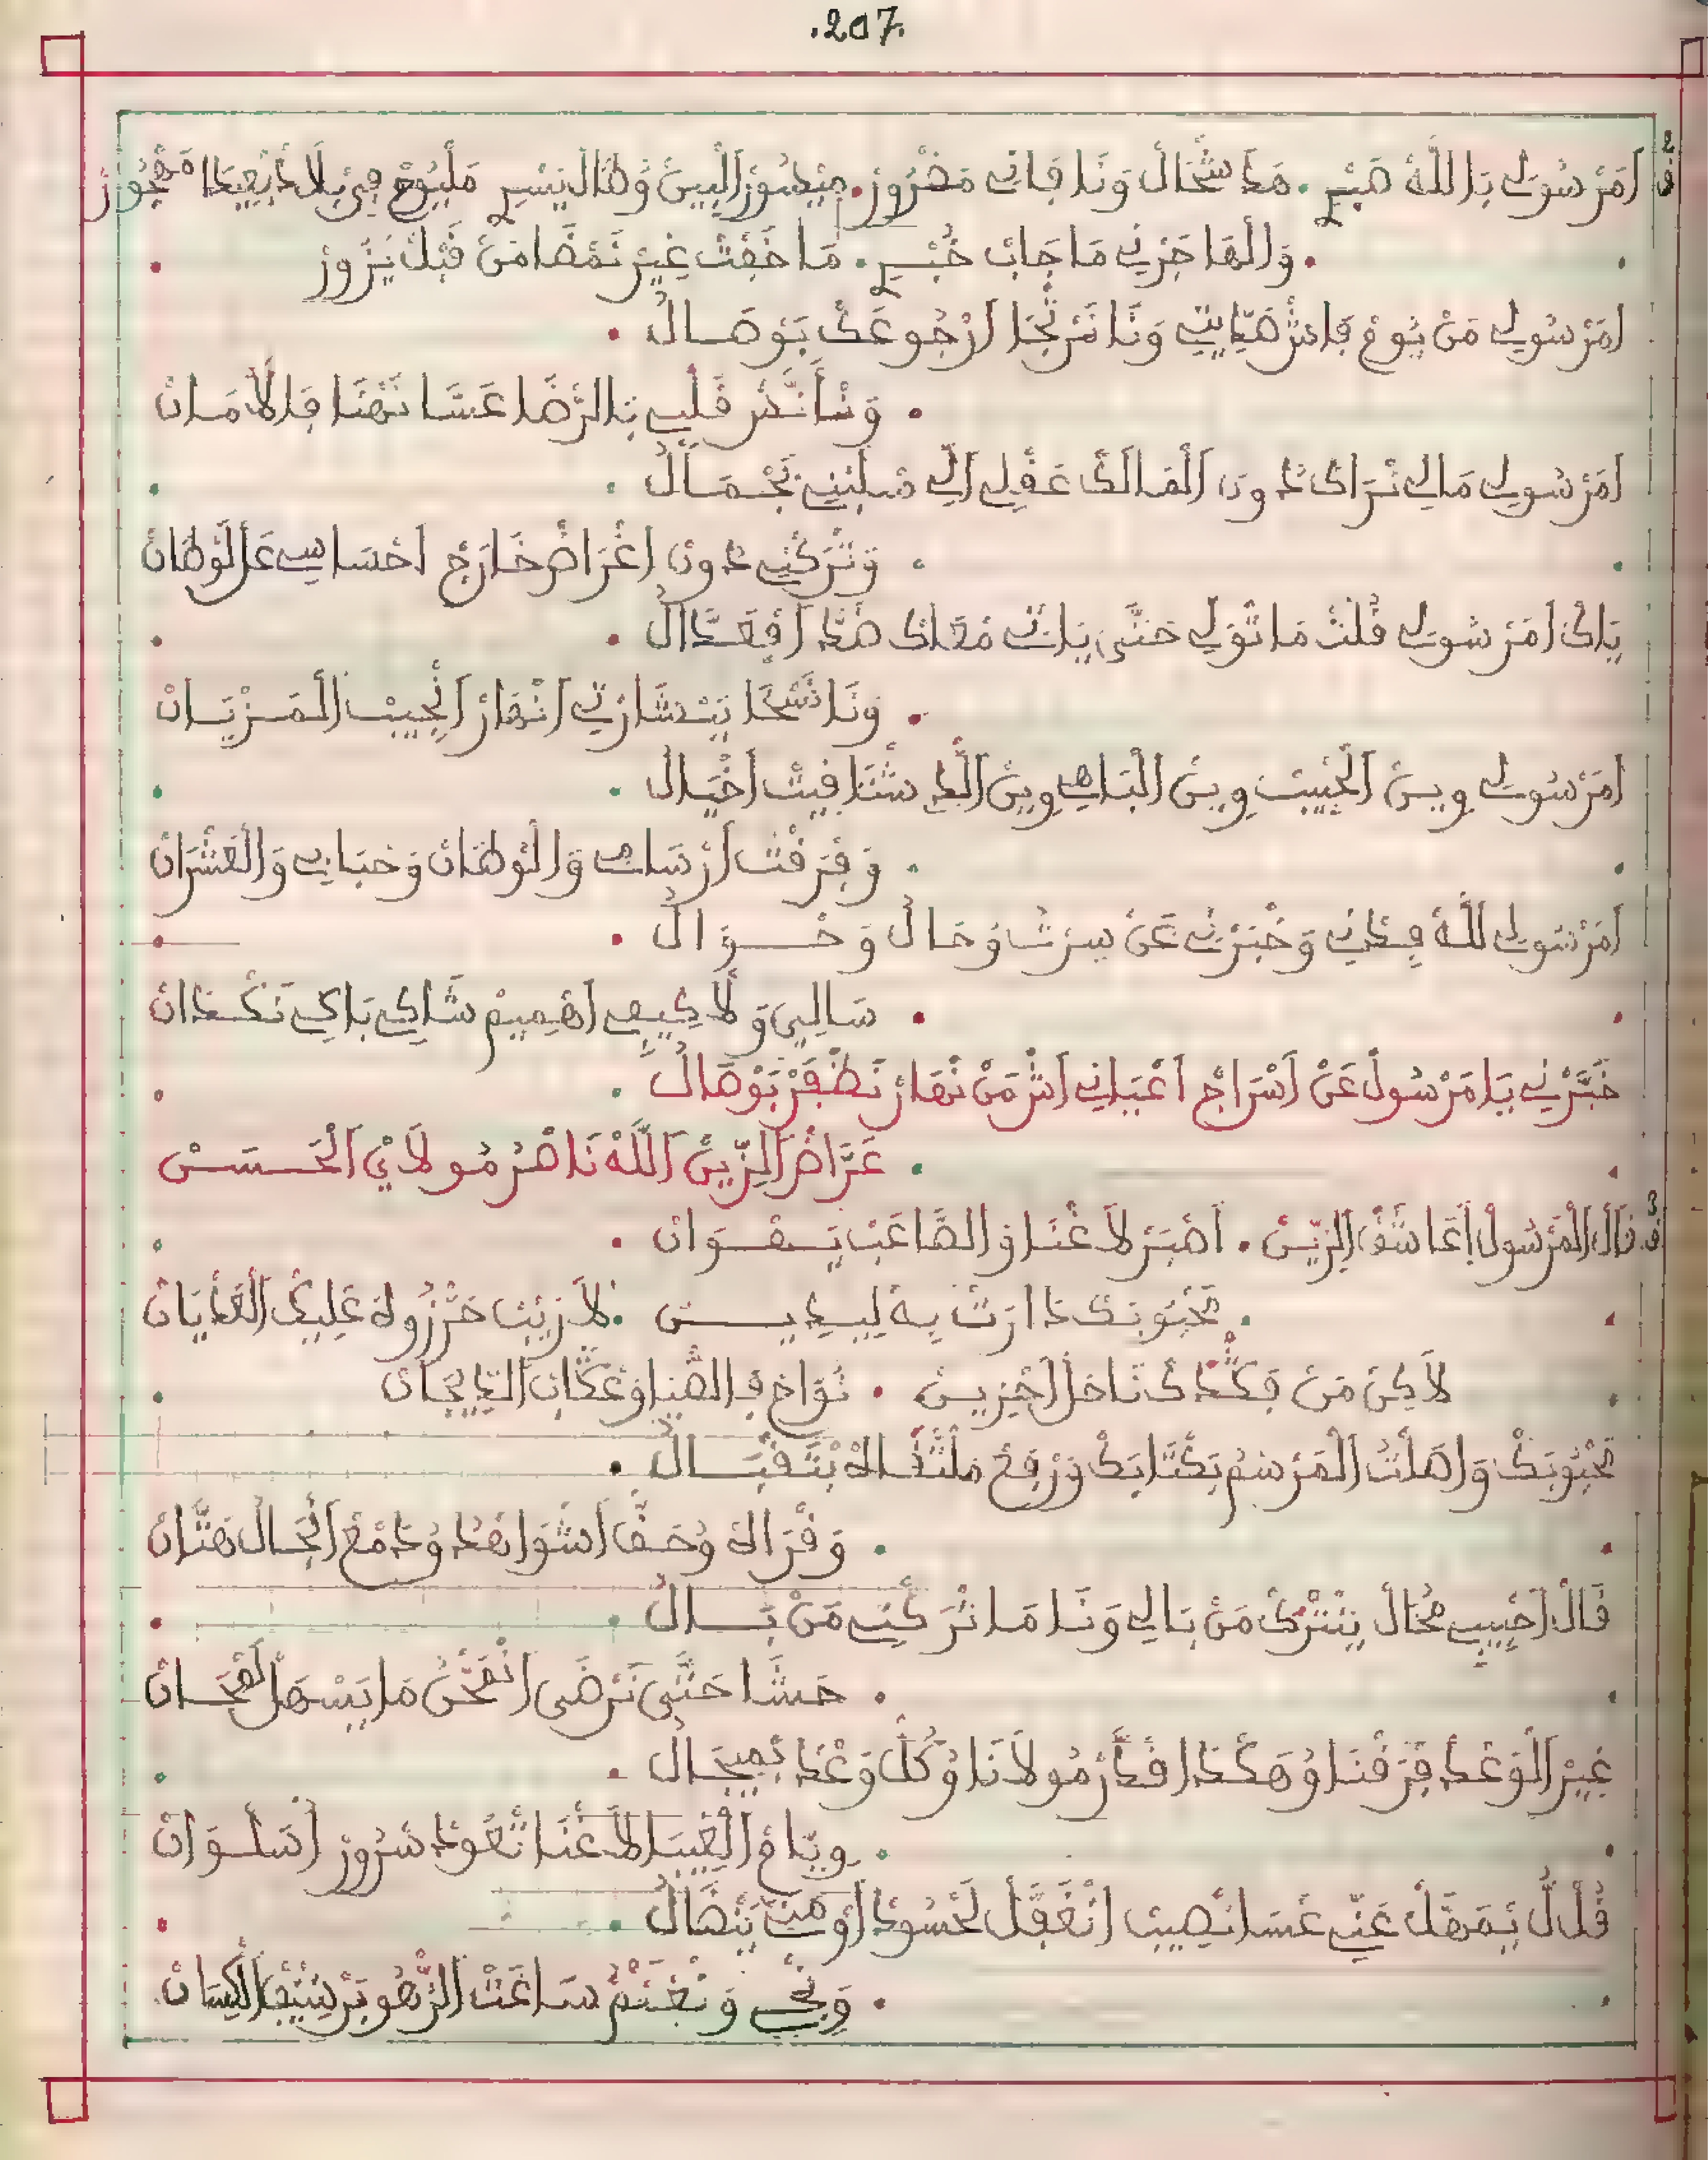 .207.
أَمَرْسُولِي بَاللَّهْ صَبْرِ . مَدَا شْحَالْ وَنَا فَانِي مَضْرُورْ . مِيسُورْ الْبِينْ وَطَالْ يَسْرِ
. وَالْهَاجَرْنِي مَا جَابْ خُبْرِ . مَا خَفْتْ غِيرْ نَمْضَا مَنْ قَبْلْ نْزُورْ
امَرْسُولِي مَنْ يُومْ فَاشْ صَدِّيتِ وَنَا نَرْتْجَا ارْجُوعَكْ بَوْصَالْ .
. وَتْأَنَّسْ قَلْبِي بَالرّْضَا عَسَّا نَهْنَا فَالْأَمَانْ
امَرْسُولِي مَالِي نْرَاكْ دُونْ الْمَالَكْ عَقْلِي الِّي سْلَبْنِي بَجْمَالْ .
. وَتْرَكْنِي دُونْ اغْرَاضْ خَارَجْ احْسَابِي عَلْ لَوْطَانْ
يَاكْ امَرْسُولِي قُلْتْ مَا تْوَلِّي حَتَّى يَاتْ مْعَاكْ ضَدّْ افْعَدَّالْ .
. وَنَا نَسْحَا تَبْشَارْتِي انْهَارْ انْجِيبْ الْمَزْيَانْ
امَرْسُولِي وِينْ الْحْبِيبْ وِينْ الْبَاهِي وِينْ الَّدِ شْتْنَافِيتْ اخْيَالْ .
. وَفْرَقْتْ ارْسَامِي وَالْوْطَانْ وَحْبَابِي وَالْعَشْرَانْ
امَرْسُولِي للَّهْ فِيدْنِي وَخْبَرْنِي عَنْ سِيرْتْ وَحَالْ وَحْوَالْ .
. سَالِي وَلَّا كِيفِي اهْمِيمْ شَاكِي بَاكِي نَكْدَانْ
خَبَّرْنِي يَا مَرْسُولْ عَنْ اسْرَاجْ اعْيَانِي اشْ مَنْ نْهَارْ نَظْفَرْ بَوْصَالْ .
. عَرَّاضْ الزِّينْ اللَّهْ نَاصْرُ مُولَايْ الْحَسَنْ
قَالْ الْمَرْسُولْ اعَاشَقْ الزِّينْ . اصْبَرْ لَا غْنَا وَالصَّاعَبْ يَسْهْوَانْ .
. مَحْبُوبَكْ دَارَتْ بِهْ لِيدِيـنْ . لَازِيتْ حَرْزُولَهْ عْلِيكْ الْعَدْيَانْ
لَاكِنْ مَنْ فَكْدَكْ نَاحَلْ احْزِينْ . نُوَّاحْ فَالضّْيَا وْعَكَّابْ الدِّيجَانْ
مَحْبُوبَكْ وَاصَلْتْ الْمَرْسَمُ بَكْتَابَكْ وَرْفَعْ مَلْتْقَالَهْ بَتْقْبَالْ .
. وَقْرَالَهْ وُحَقّْ اشْوَاهْدُ وُدَمْعْ انْجَالْ هَتَّانْ
قَالْ احْبِيبِي مُحَالْ يَنْتْرَكْ مَنْ بَالِي وَنَا مَا تْرَكْنِي مَنْ بَالْ .
. حَشَا حَتَّى نَرْضَى انْمَحْنُ مَا يَسْهَلْ لَمْحَانْ
غِيرْ الْوَعْدْ فَرَقْنَا وُهَكْدَا قَدَّرْ مُولَانَا وُكُلّْ وَعْدْ بَمِيجَالْ .
. وِيَّامْ الْغِيبَا لَا غْنَا تْعُودْ سْرُورْ اسْلْوَانْ
قُلُّ يَمْهَلْ عَنِّي عْسَا نْصِيبْ انْغَفَّلْ لَحْسُودْ أَوْ مَنْ يَنْضَالْ .
. وَنْجِي وَنْغَنْمُ سَاعْتْ الزّْهُو بَرْنِينْ الْكِيسَانْ